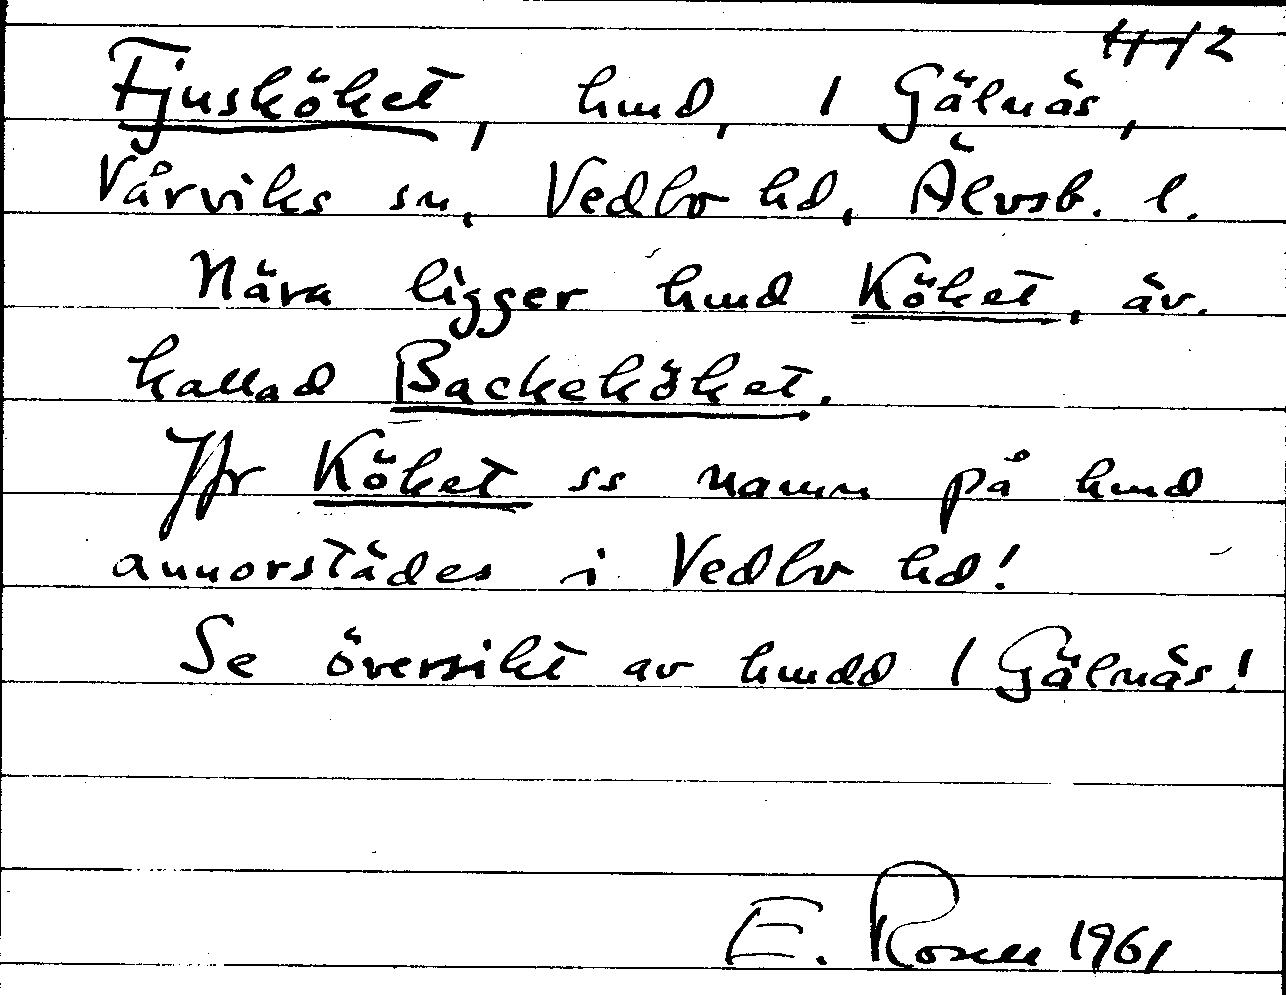 Fjusköket, hmd, 1 Gälnäs,
Vårviks sn, Vedbo hd, Älvsb. l.
Nära ligger hmd Köket, äv.
kallad Backeköket.
Jfr Köket ss namn på hmd
annorstädes i Vedbo hd!
Se översikt av hmdd 1 Gälnäs!
E. Rosell 1961